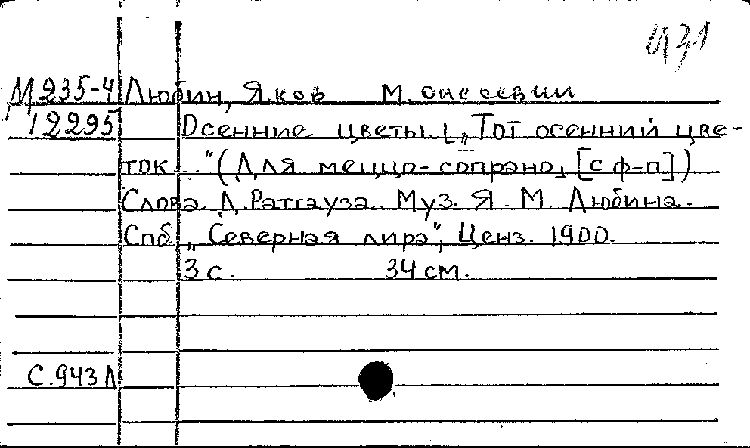 М235-4 Любин, Яков Моисеевич
12295 Осенние цветы. („Тот осенний цве-
ток..." (Для меццо-сопрано, [с ф-п])
Слова Д. Ратгауза. Муз. Я. М. Любина.
Спб „Северная лира", Ценз. 1900.
3 с. 34 см.
С.943Л